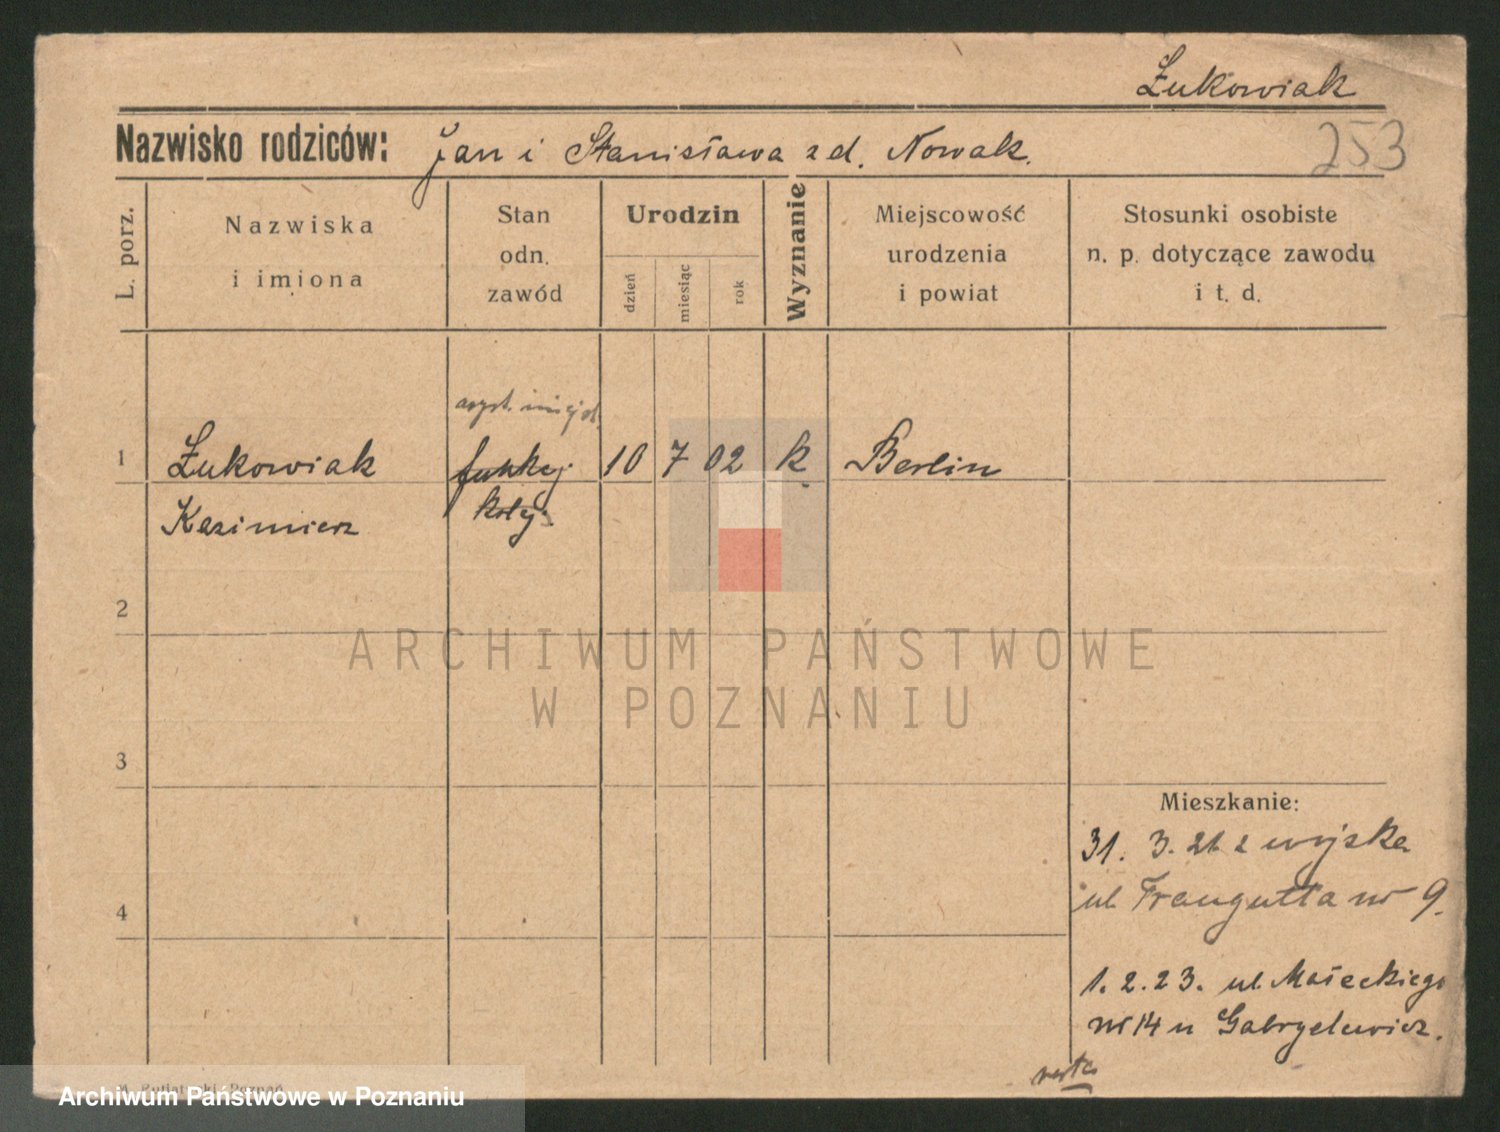 Żukowiak
Nazwisko rodziców: Jan i Stanisława z d. Nowak.
253
L. porz.
Nazwiska
i imiona
Stan
odn.
zawód
Urodzin
dzień
miesiąc
rok
Wyznanie
Miejscowość
urodzenia
i powiat
Stosunki osobiste
n. p. dotyczące zawodu
i t. d.
1 Żukowiak funkcj. 10 7 02 k. Berlin
Kazimierz kolej.
2
3
4
Mieszkanie:
31. 3. 21 z wojska
ul. Traugutta nr 9.
1. 2. 23. ul. Małeckiego
nr 14 u Gabryelewicz.
verte
ARCHIWUM PAŃSTWOWE
W POZNANIU
Archiwum Państwowe w Poznaniu